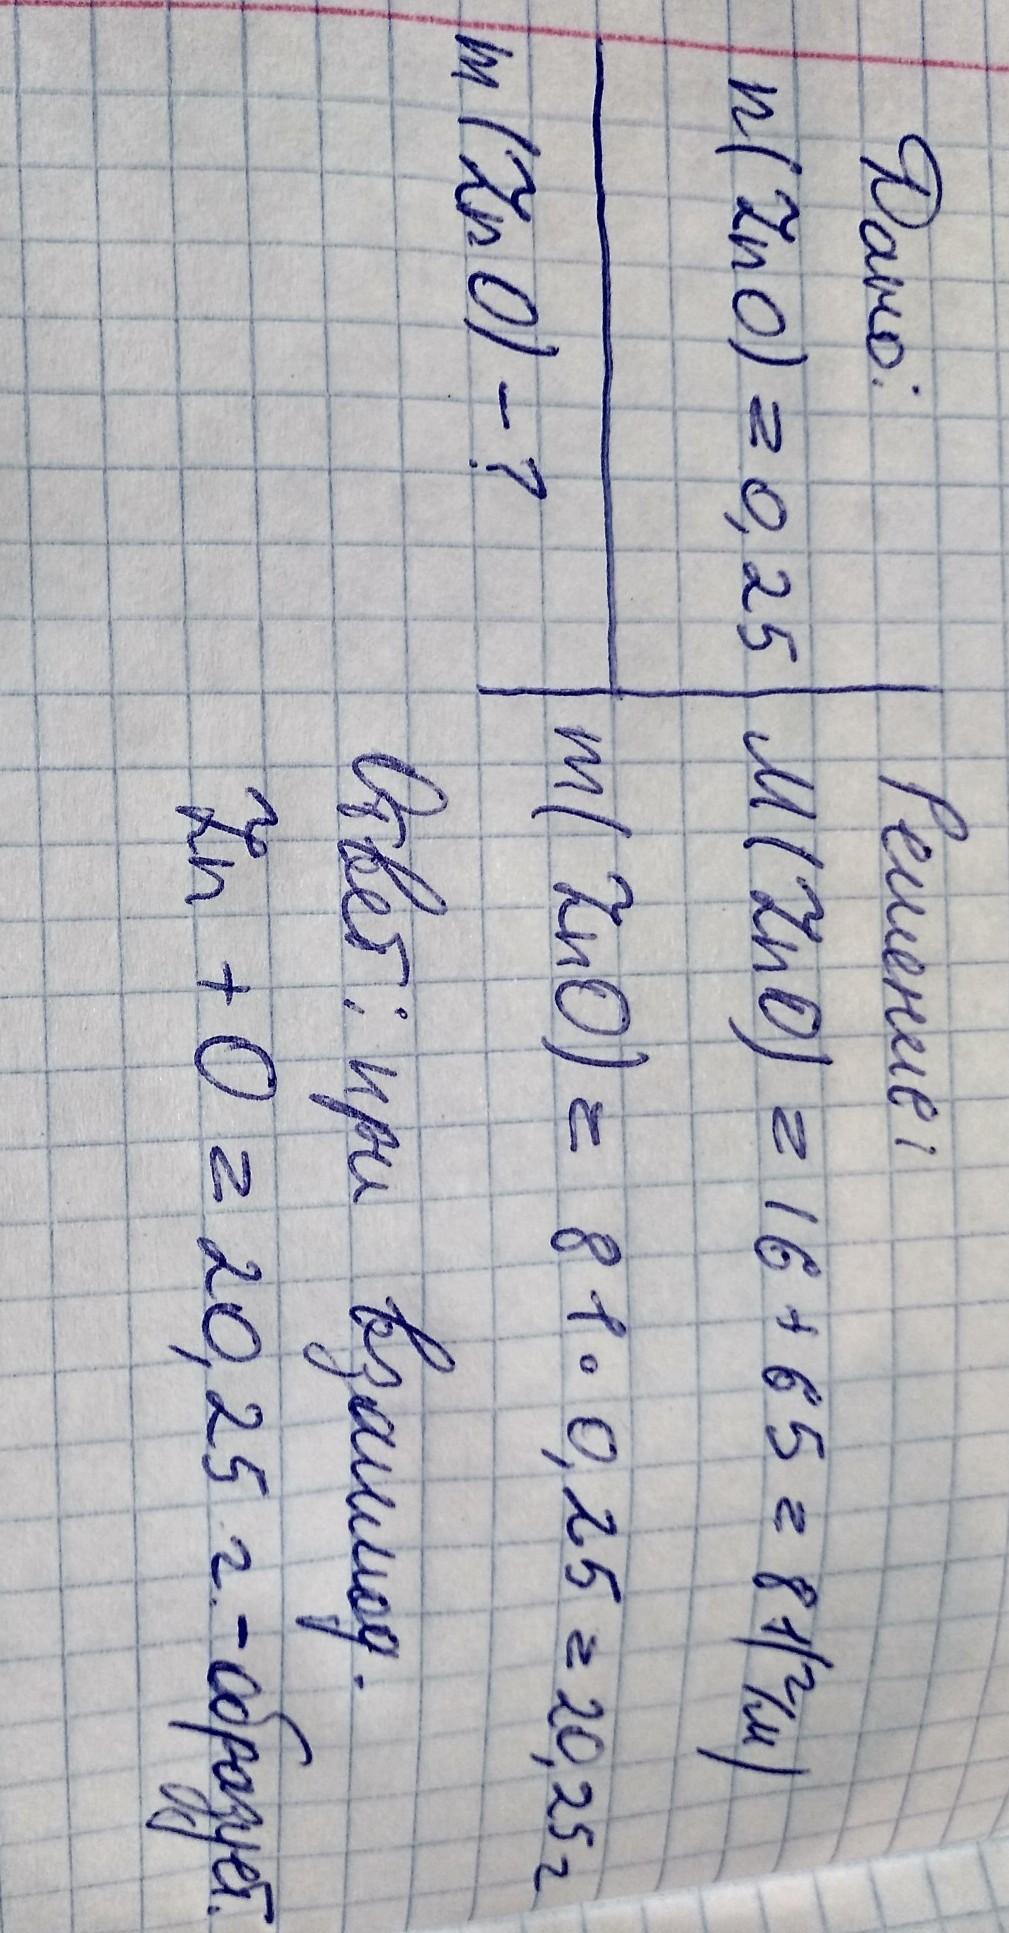 Дано:
n(ZnO) = 0,25
m(ZnO) - ?
Решение:
M(ZnO) = 16 + 65 = 81(г/м)
m(ZnO) = 81 · 0,25 = 20,25 г
Ответ: при взаимод.
Zn + O = 20,25 г. - образует.